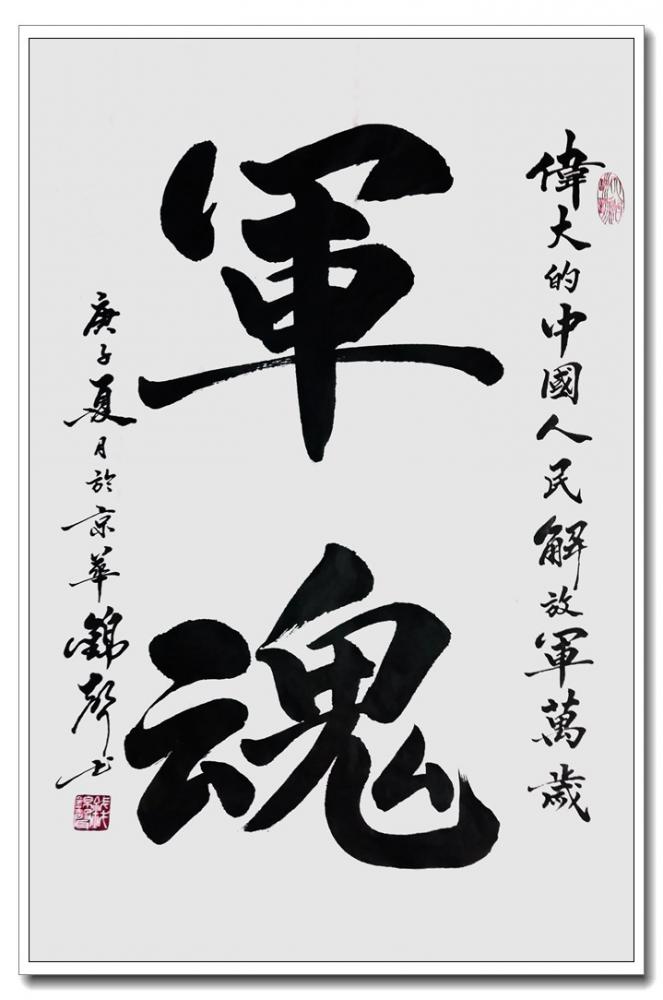 偉大的中國人民解放軍萬歲
軍魂
庚子夏月於京華錦聲书